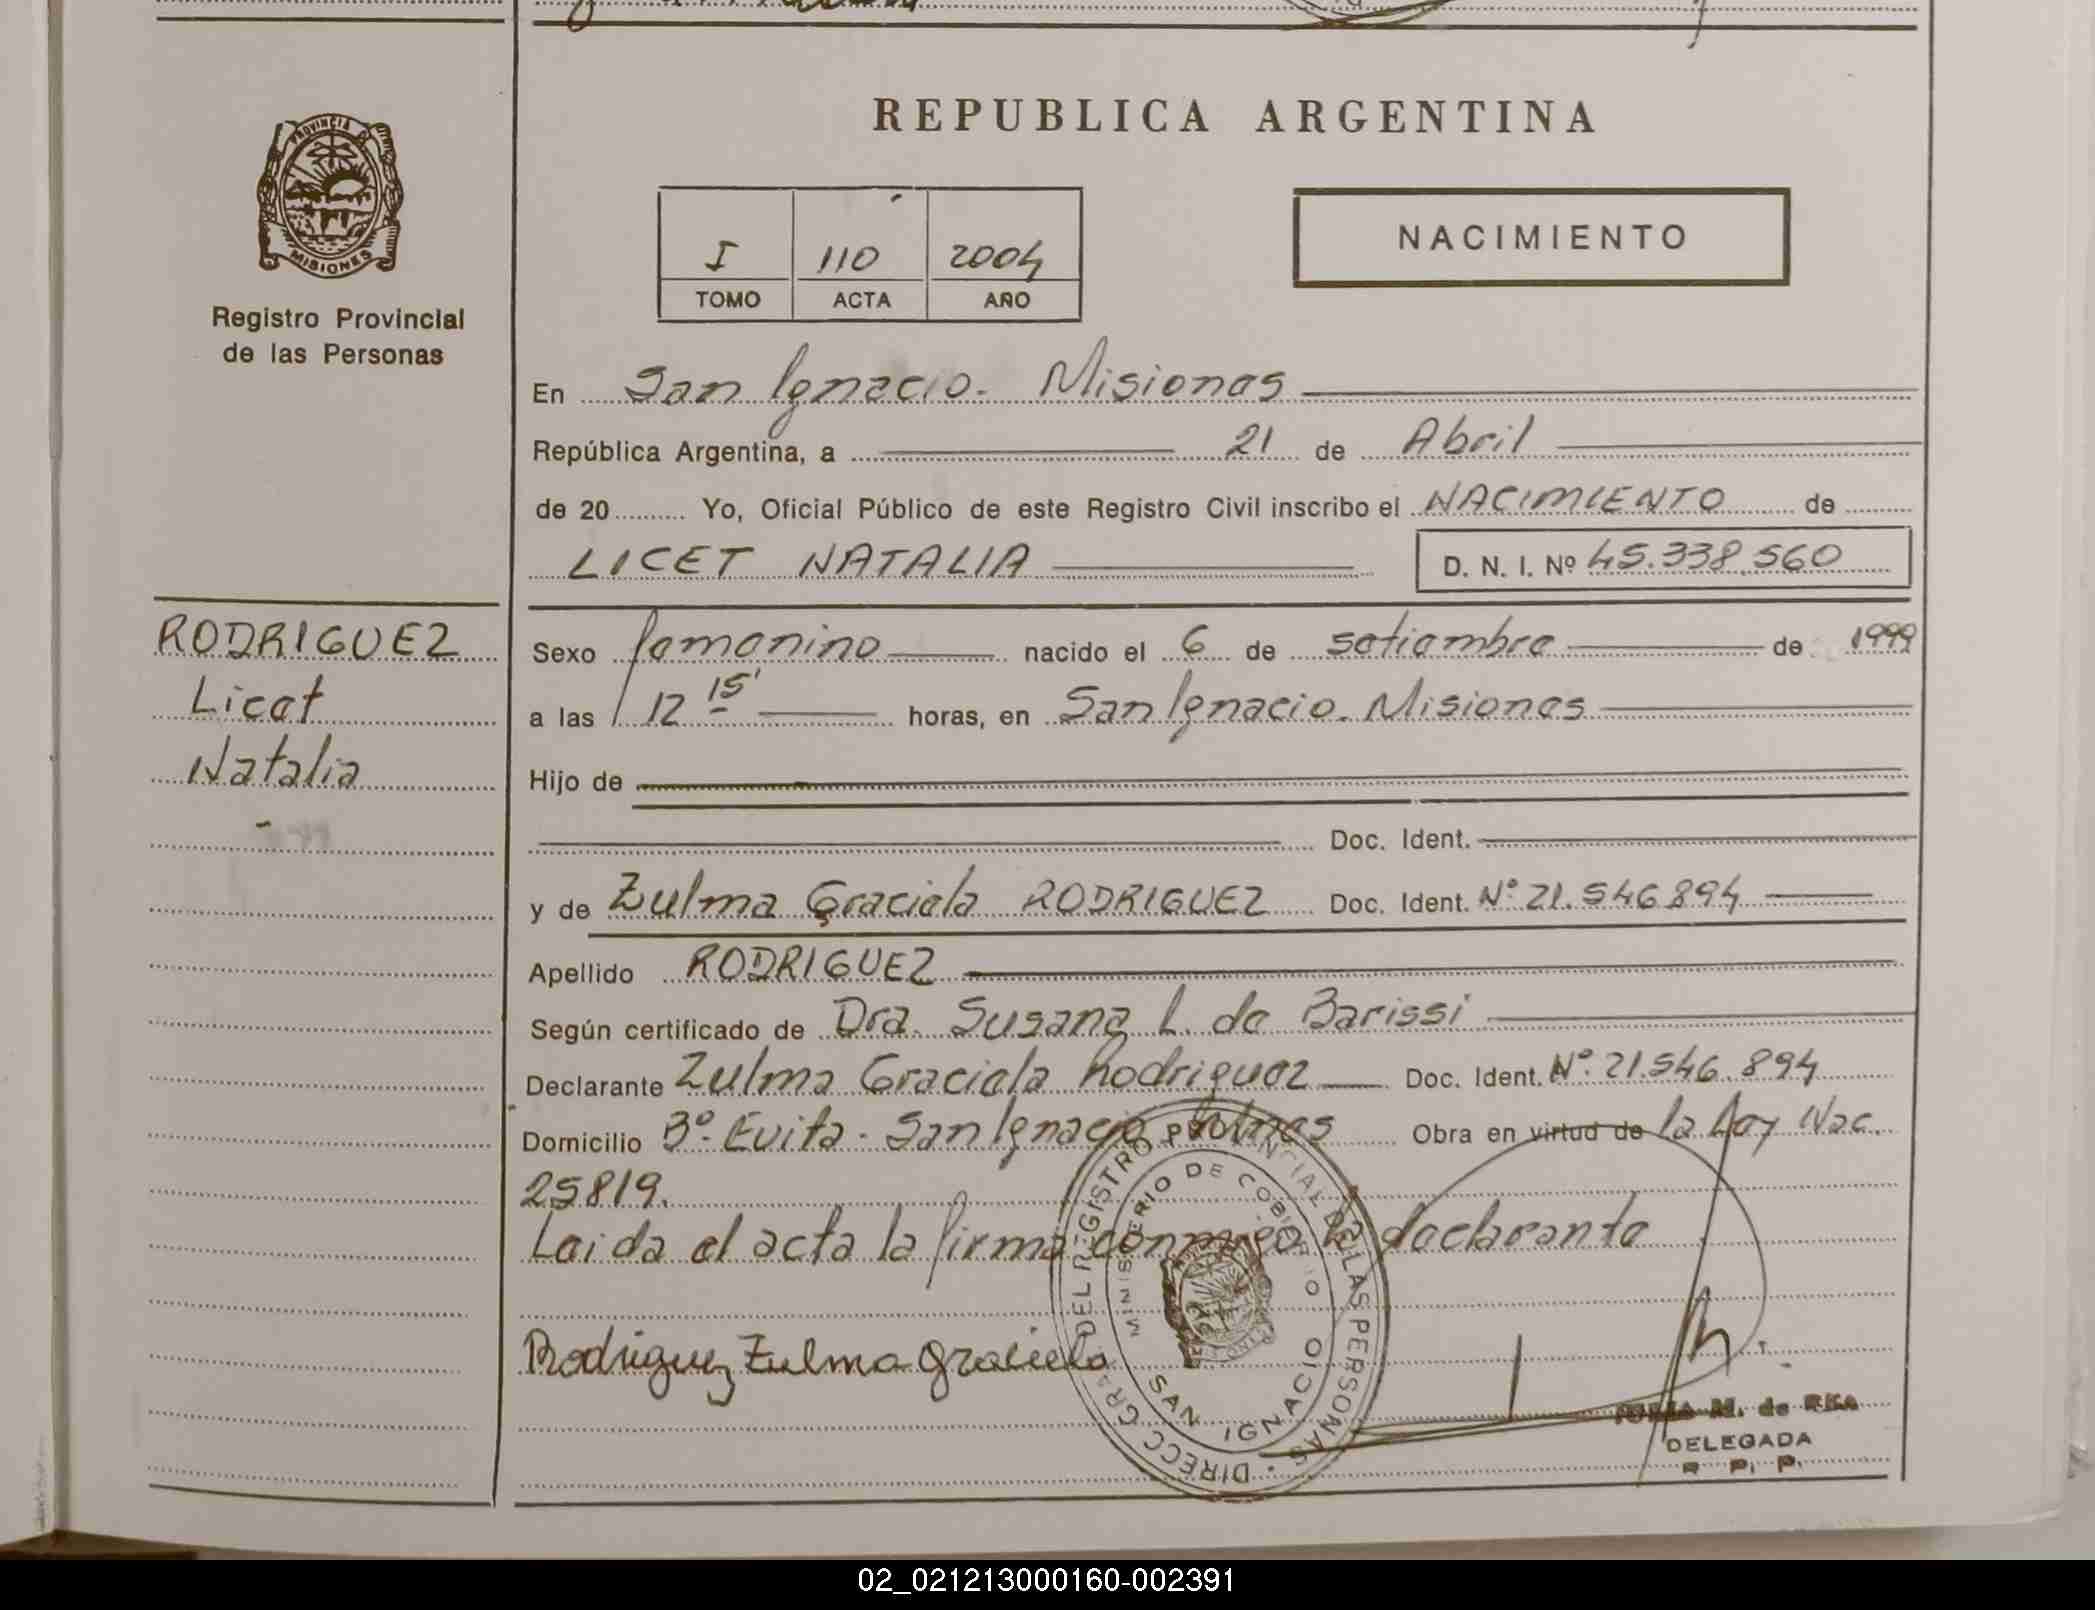 REPUBLICA ARGENTINA
PROVINCIA D
MISIONES
Registro Provincial
de las Personas
I 110 2004
TOMO ACTA AÑO
NACIMIENTO
En San Ignacio. Misiones
República Argentina, a 21 de Abril
de 20 Yo, Oficial Público de este Registro Civil inscribo el NACIMIENTO de
LICET NATALIA D. N. I. Nº 45.338.560
RODRIGUEZ
Licet
Natalia
Sexo femenino nacido el 6 de setiembre de 1999
a las 12 15' horas, en San Ignacio. Misiones
Hijo de
Doc. Ident.
y de Zulma Graciela RODRIGUEZ Doc. Ident. Nº 21.546.894
Apellido RODRIGUEZ
Según certificado de Dra. Susana L. de Barissi
Declarante Zulma Graciela Rodriguez Doc. Ident. Nº. 21.546.894
Domicilio Bº. Evita. San Ignacio Mnes Obra en virtud de la Ley Nac.
25819.
Leida el acta la firma conmigo la declarante
Rodriguez Zulma Graciela
DIRECC GRAL DEL REGISTRO PROVINCIAL DE LAS PERSONAS
MINISTERIO DE GOBIERNO
SAN IGNACIO
M. de REA
DELEGADA
R. P. P.
02_021213000160-002391